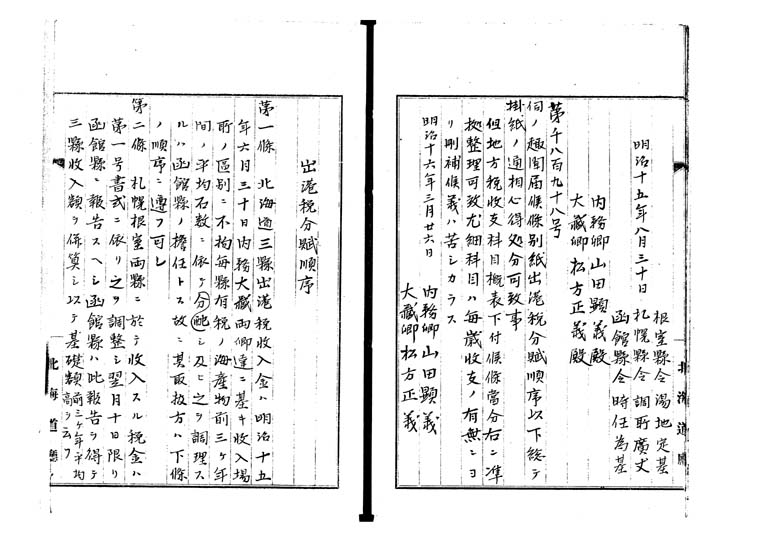 明治十五年八月三十日
根室縣令 湯地定基
札幌縣令 調所廣丈
函館縣令 時任為基
内務卿 山田顕義殿
大藏卿 松方正義殿
第千八百九十八号
伺ノ趣聞届候條別紙出港税分賦順序以下総テ
掛紙ノ通相心得処分可致事
但地方税收支科目概表下付候條當分右ニ準
拠整理可致尤細科目ハ毎歳收支ノ有無ニヨ
リ刪補候義ハ苦シカラス
明治十六年三月廿六日
内務卿 山田顕義
大藏卿 松方正義
北海道廳
出港税分賦順序
第一條 北海道三縣出港税收入金ハ明治十五
年六月三十日内務大藏両卿達ニ基キ收入場
所ノ區別ニ不拘毎縣有税ノ海産物前三ヶ年
間ノ平均石数ニ依テ分配シ及ヒ之ヲ調理ス
ルハ函館縣ノ擔任トス故ニ其取扱方ハ下條
ノ順序ニ遵フ可シ
第二條 札幌根室両縣ニ於テ收入スル税金ハ
第一号書式ニ依リ之ヲ調整シ翌月十日限リ
函館縣ニ報告スヘシ函館縣ハ此報告ヲ得テ
三縣收入額ヲ併算シ以テ基礎額前三ヶ年平均高ヲ云フ
北海道廳